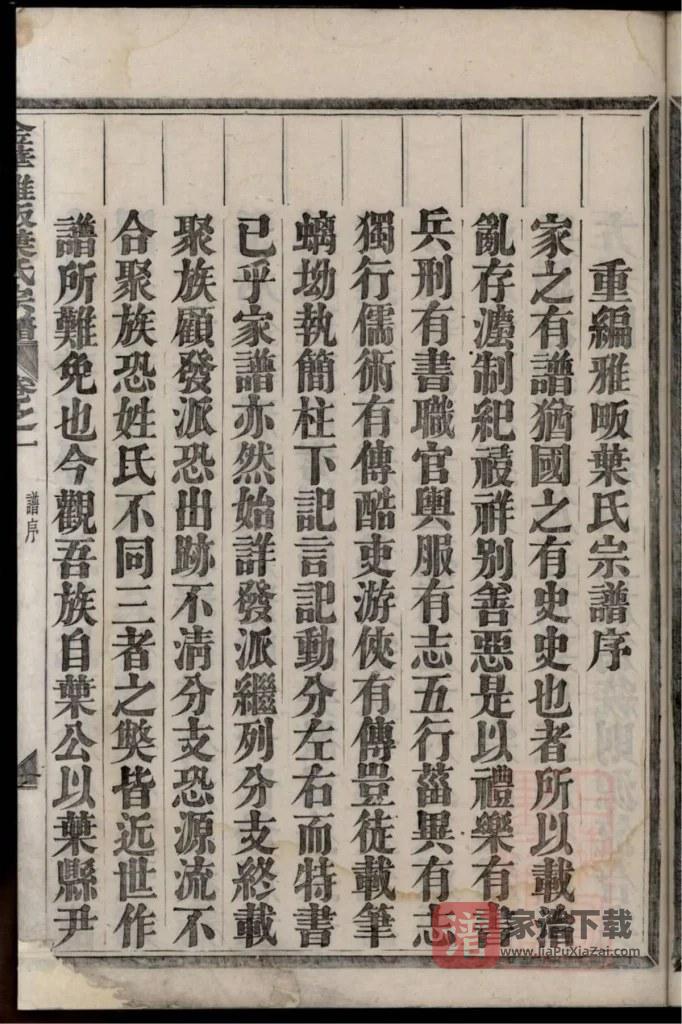 重編雅畈葉氏宗譜序
家之有譜猶國之有史史也者所以載治
亂存灋制紀祲祥别善惡是以禮樂有書
兵刑有書職官輿服有志五行菑異有志
獨行儒術有傳酷吏游俠有傳豈徒載筆
螭坳執簡柱下記言記動分左右而特書
已乎家譜亦然始詳發派繼列分支終載
聚族顧發派恐出跡不清分支恐源流不
合聚族恐姓氏不同三者之獘皆近世作
譜所難免也今觀吾族自葉公以葉縣尹
金華雅畈葉氏宗譜 卷之一 譜序
譜 家谱下载
www.JiaPuXiaZai.com